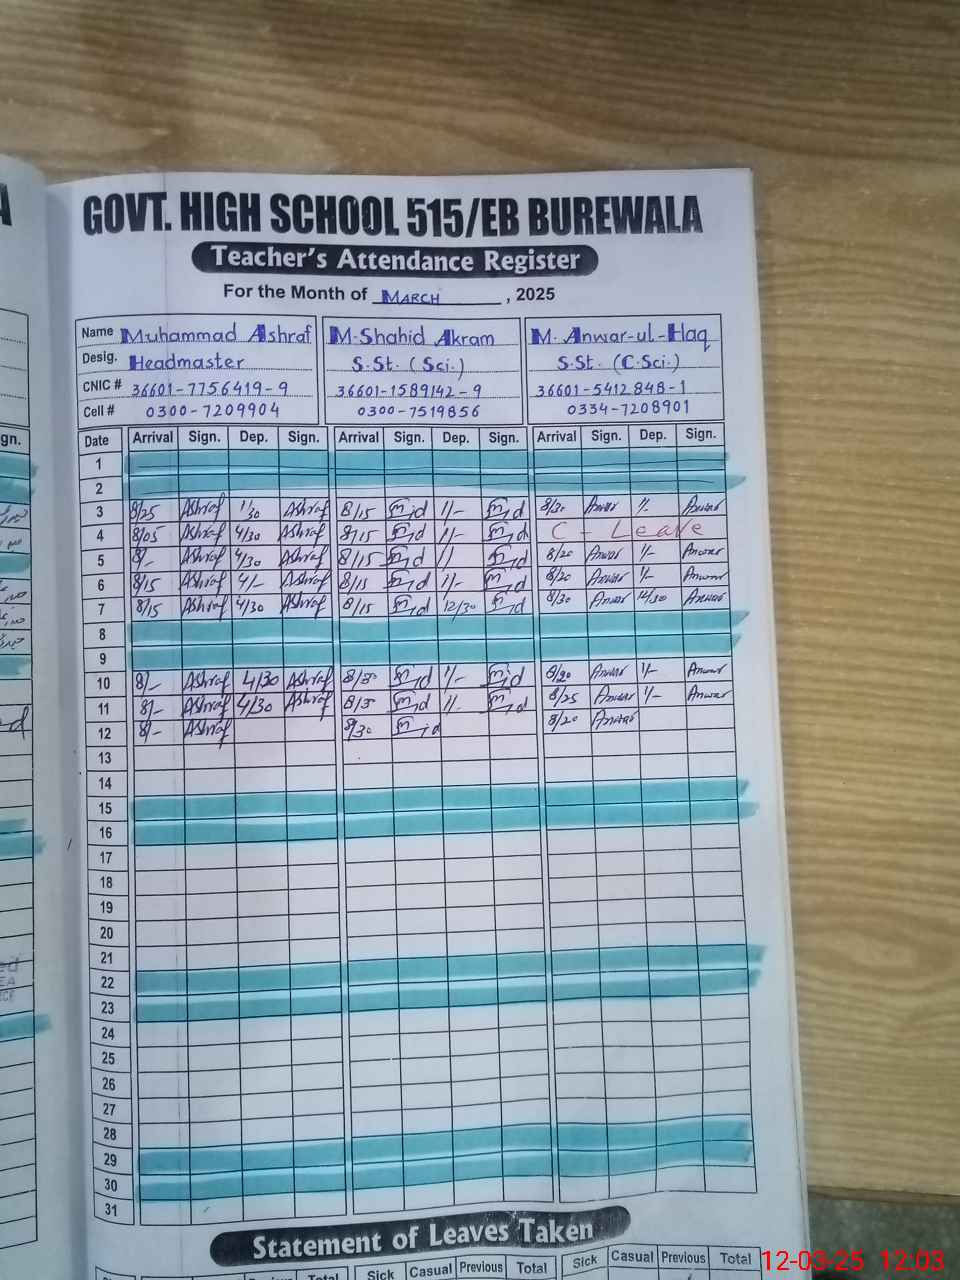 GOVT. HIGH SCHOOL 515/EB BUREWALA
Teacher's Attendance Register
For the Month of MARCH, 2025
Name Muhammad Ashraf M. Shahid Akram M. Anwar-ul-Haq
Desig. Headmaster S.St. (Sci.) S.St. (C.Sci.)
CNIC # 36601-7756419-9 36601-1589142-9 36601-5412848-1
Cell # 0300-7209904 0300-7519856 0334-7208901
Date Arrival Sign. Dep. Sign. Arrival Sign. Dep. Sign. Arrival Sign. Dep. Sign.
1
2
3 8/25 Ashraf 1/30 Ashraf 8/15 1/- 8/30 Anwar 1/- Anwar
4 8/05 Ashraf 4/30 Ashraf 8/15 1/- C - Leave
5 8/- Ashraf 4/30 Ashraf 8/15 8/20 Anwar 1/- Anwar
6 8/15 Ashraf 4/- Ashraf 8/15 1/- 8/20 Anwar 1/- Anwar
7 8/15 Ashraf 4/30 Ashraf 8/15 12/30 8/30 Anwar 12/30 Anwar
8
9
10 8/- Ashraf 4/30 Ashraf 1/- 8/20 Anwar 1/- Anwar
11 8/- Ashraf 4/30 Ashraf 1/- 8/25 Anwar 1/- Anwar
12 8/- Ashraf 8/30 8/20 Anwar
13
14
15
16
17
18
19
20
21
22
23
24
25
26
27
28
29
30
31
Statement of Leaves Taken
Total Sick Casual Previous Total Sick Casual Previous Total
12-03-25 12:03